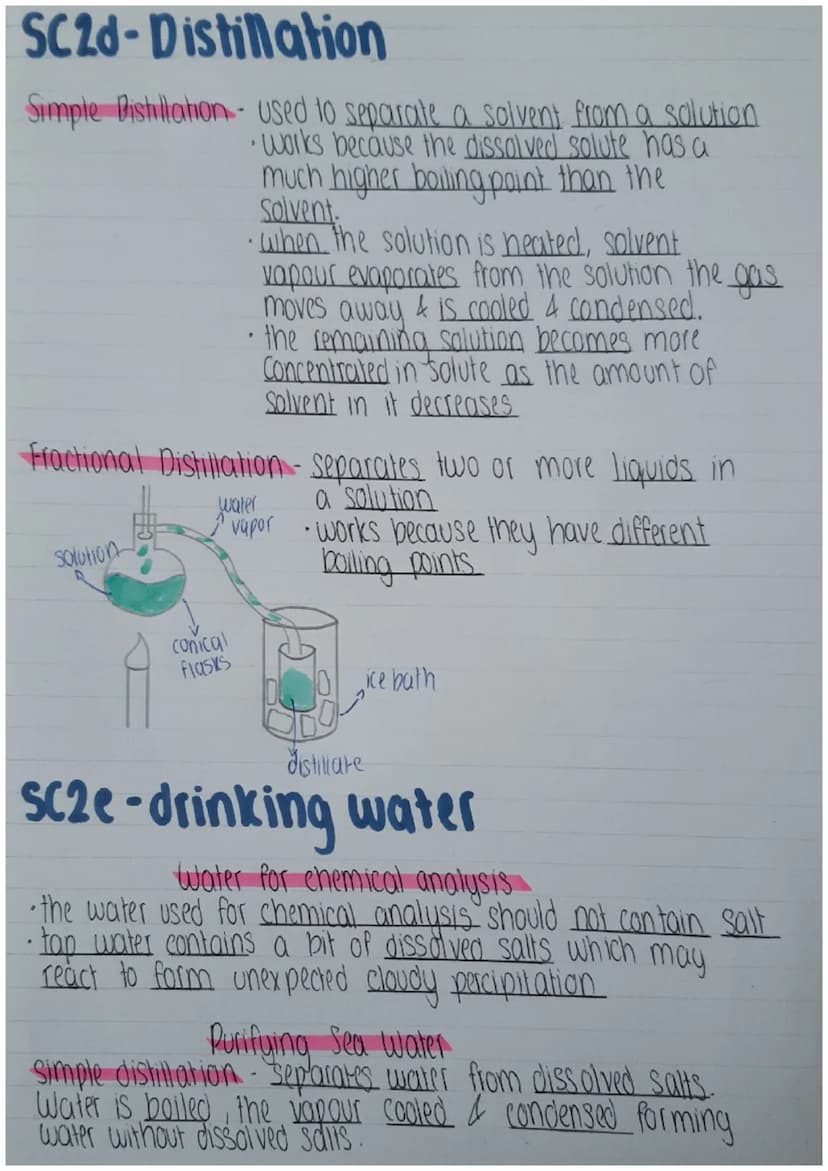 SC2d - Distillation
Simple Distillation - used to separate a solvent from a solution
· works because the dissolved solute has a
much higher boiling point than the
solvent.
· when the solution is heated, solvent
vapour evaporates from the solution the gas
moves away & is cooled & condensed.
· the remaining solution becomes more
concentrated in solute as the amount of
solvent in it decreases
Fractional Distillation - separates two or more liquids in
a solution
· works because they have different
boiling points
water
vapor
solution
conical
flasks
ice bath
distillate
SC2e - drinking water
Water for chemical analysis
· the water used for chemical analysis should not contain salt
· tap water contains a bit of dissolved salts which may
react to form unexpected cloudy percipitation
Purifying Sea Water
simple distillation - separates water from dissolved salts.
Water is boiled, the vapour cooled & condensed forming
water without dissolved salts.